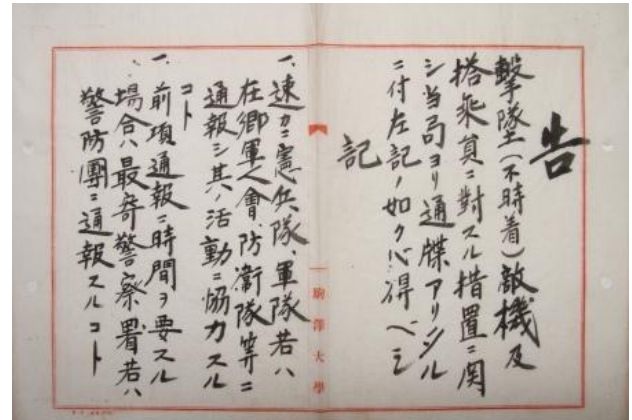 告
撃墜(不時着)敵機及
搭乗員ニ對スル措置ニ関
シ当局ヨリ通牒アリシ
ニ付左記ノ如ク心得ベシ
記
一、速カニ憲兵隊、軍隊若ハ
在郷軍人會、防衛隊等ニ
通報シ其ノ活動ニ協力スル
コト
一、前項通報ニ時間ヲ要スル
場合ハ最寄警察署若ハ
警防團ニ通報スルコト
駒澤大學